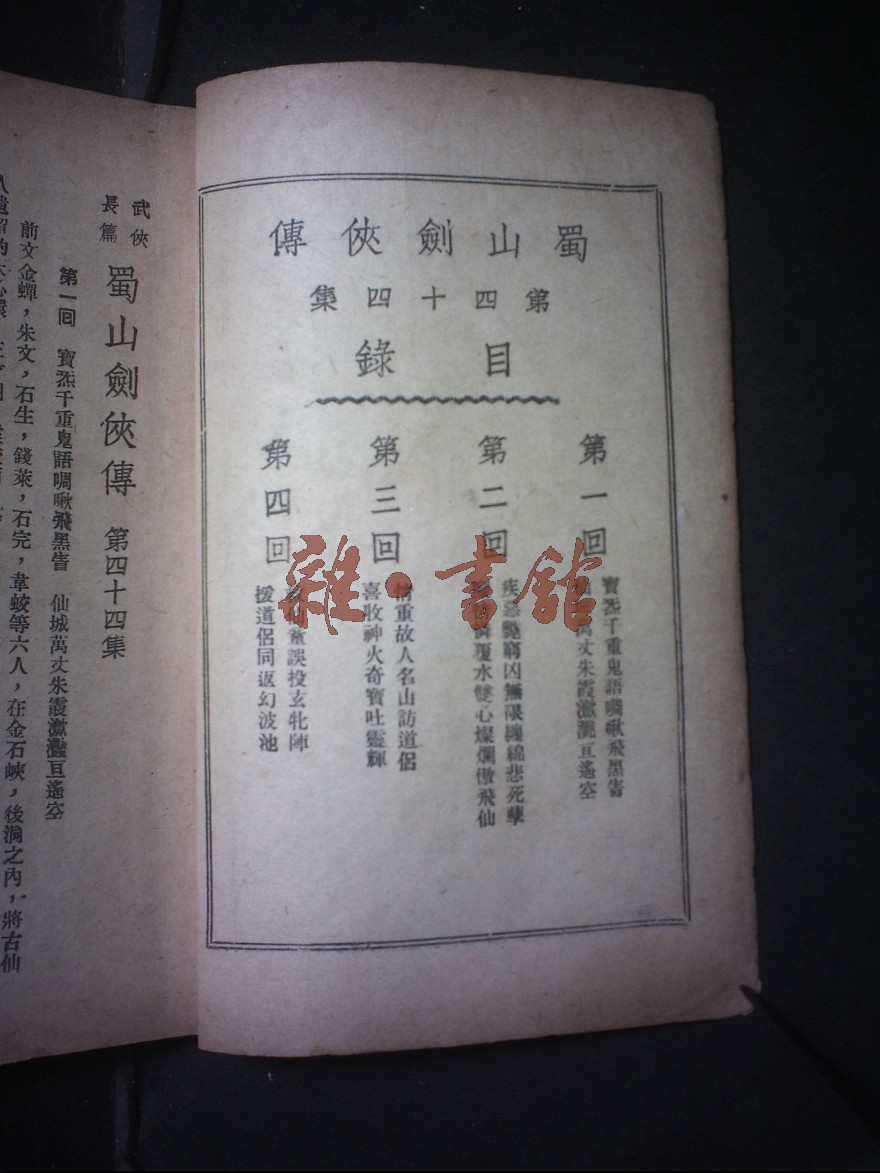 蜀山劍俠傳
第四十四集
目錄
第一回
寶炁千重鬼語啁啾飛黑眚
萬丈朱霞瀲灩亘遙空
第二回
疾惡斃窮凶無限纏綿悲死孽
覆水雙心燦爛傲飛仙
第三回
情重故人名山訪道侶
喜收神火奇寶吐靈輝
第四回
仙童誤投玄牝陣
援道侶同返幻波池
雜·書館
武俠
長篇
蜀山劍俠傳 第四十四集
第一回 寶炁千重鬼語啁啾飛黑眚 仙城萬丈朱霞瀲灩亘遙空
前文金蟬，朱文，石生，錢萊，石完，韋蛟等六人，在金石峽，後洞之內，將古仙